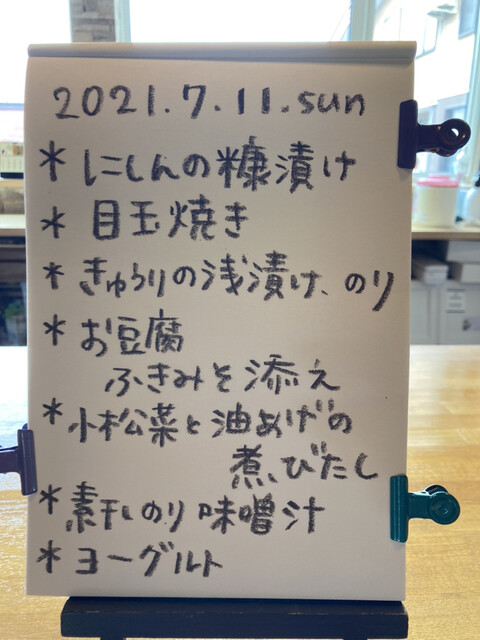 2021.7.11.sun
* にしんの糠漬け
* 目玉焼き
* きゅうりの浅漬け、のり
* お豆腐
ふきみそ添え
* 小松菜と油あげの
煮びたし
* 素干しのり味噌汁
* ヨーグルト